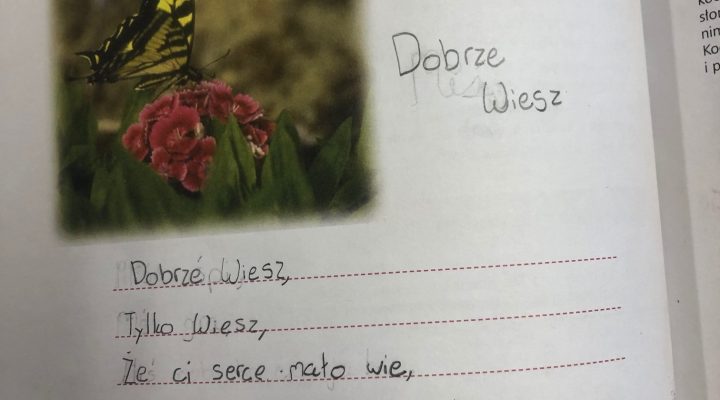 Dobrze
Wiesz
Dobrze Wiesz,
Tylko Wiesz,
Że ci serce mało wie,
i p